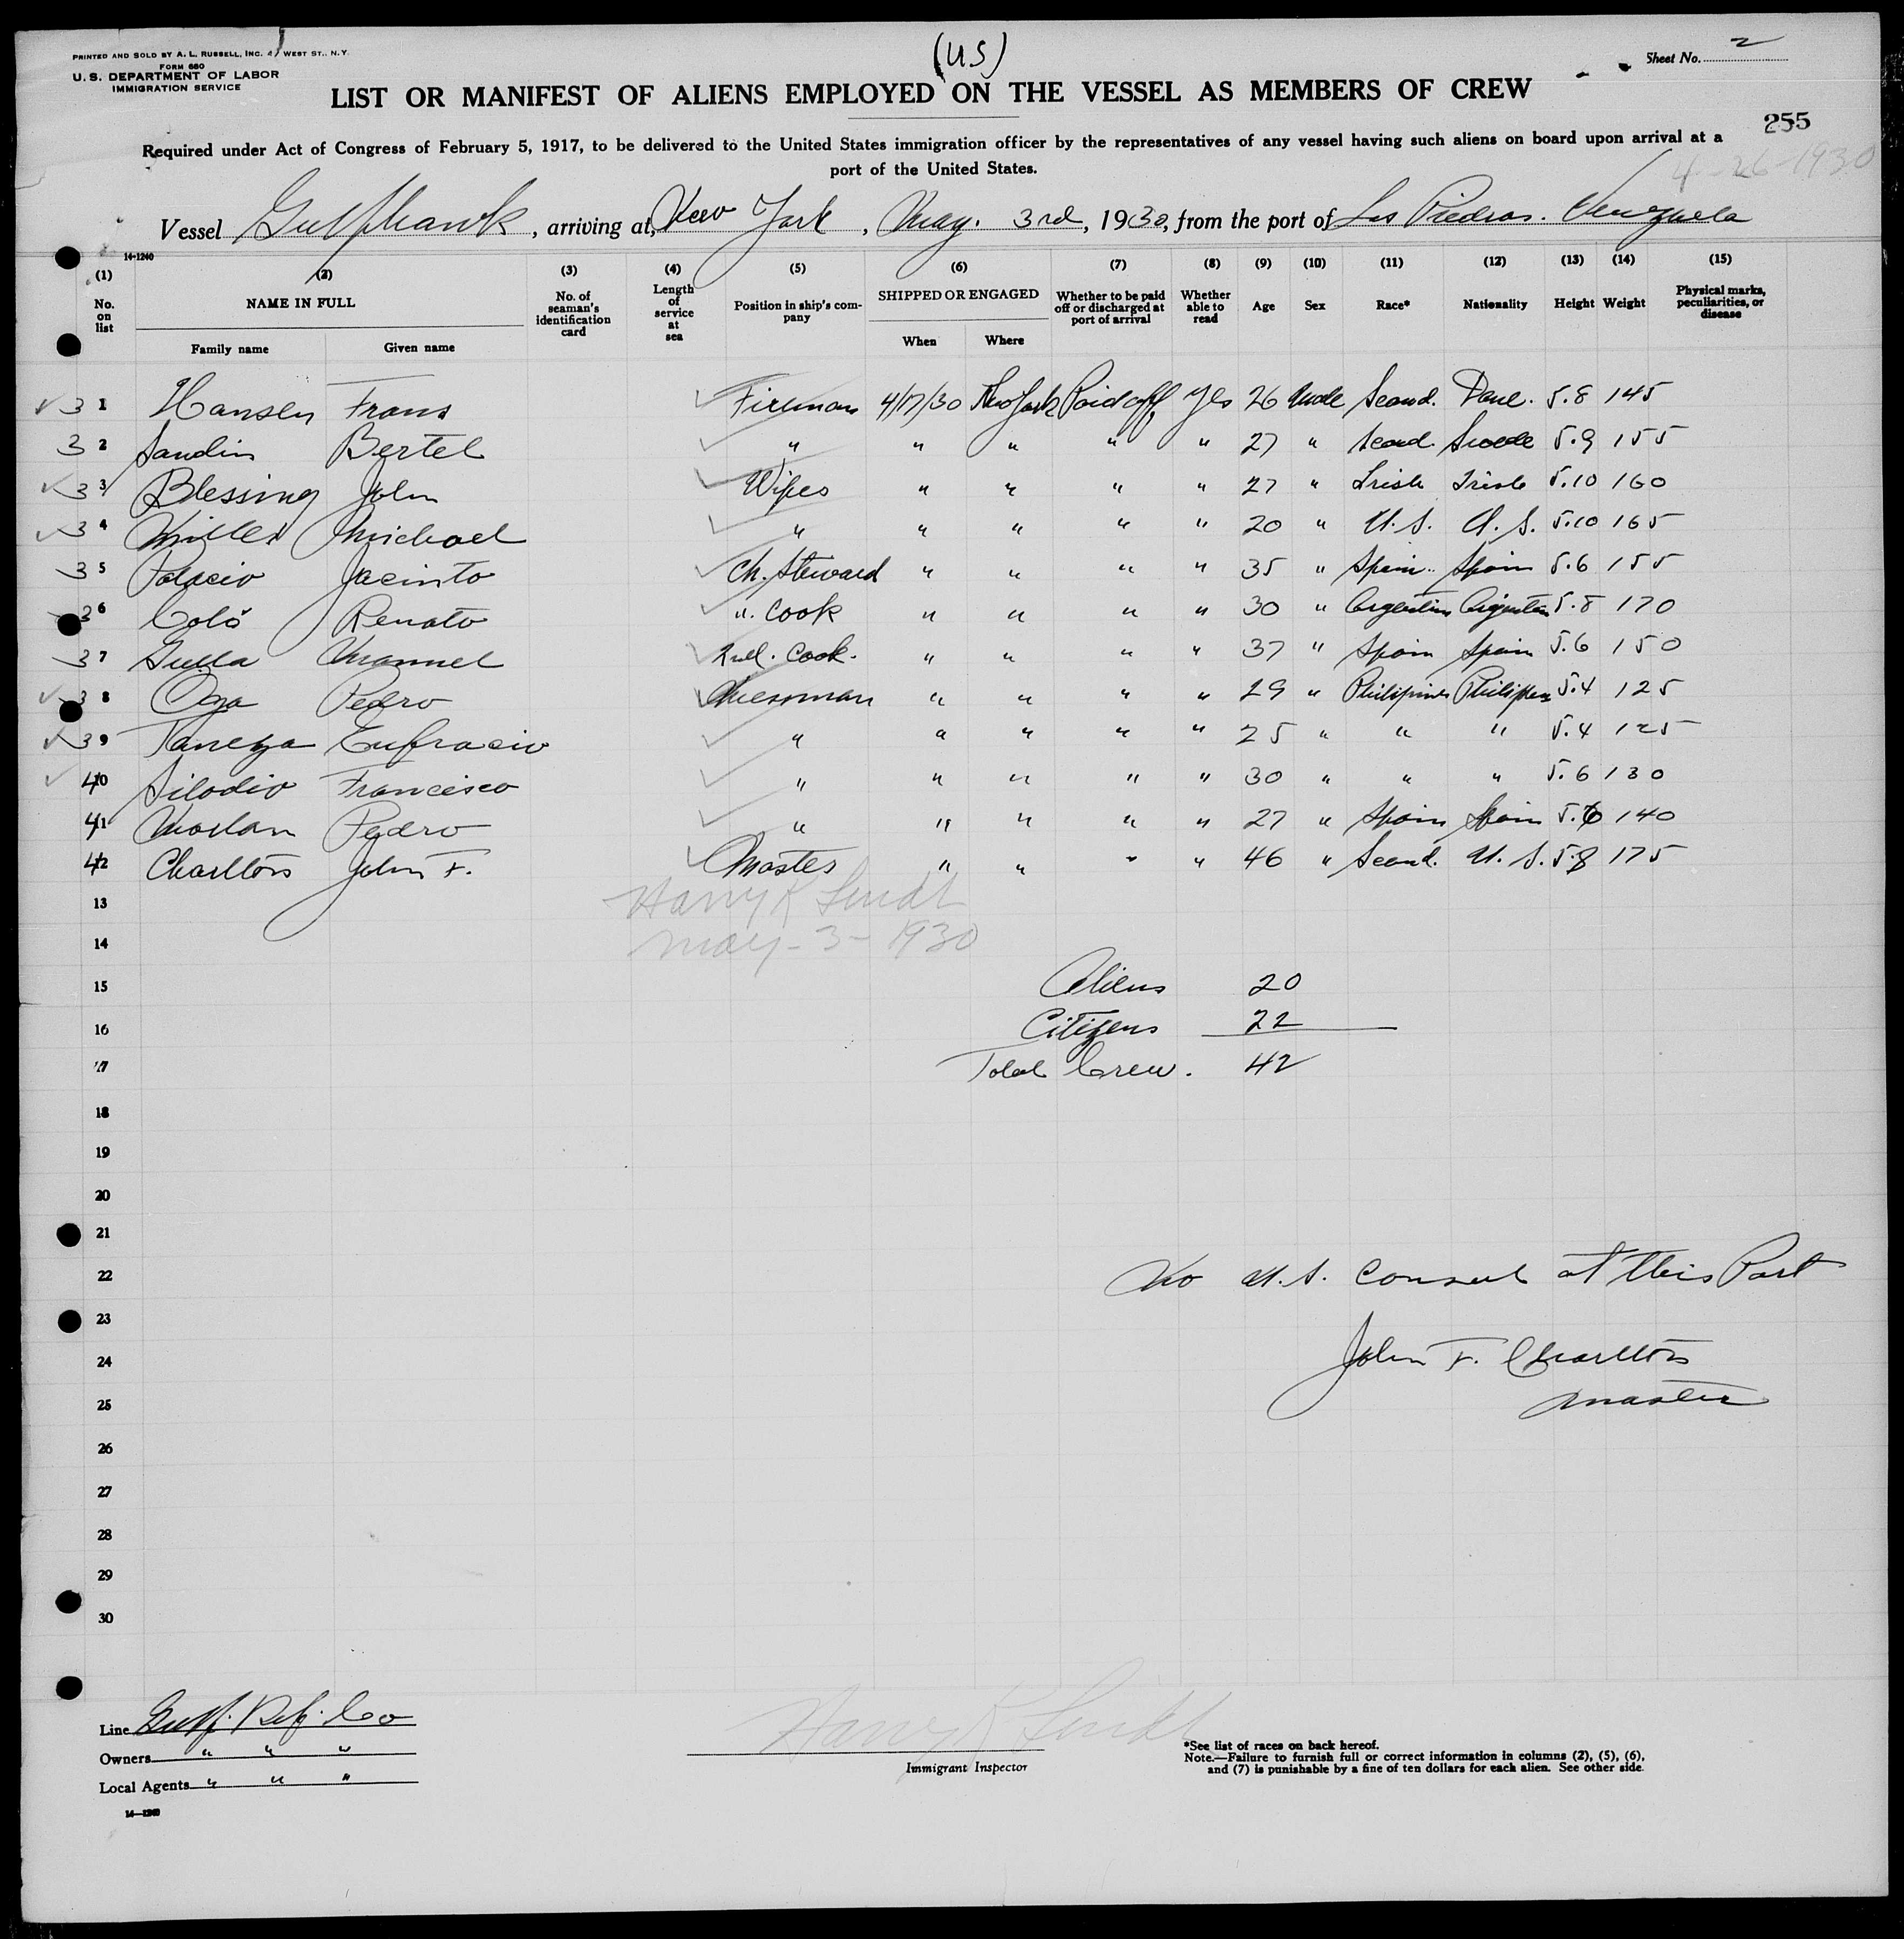 PRINTED AND SOLD BY A. L. RUSSELL, INC. 47 WEST ST., N.Y.
FORM 680
U. S. DEPARTMENT OF LABOR
IMMIGRATION SERVICE
(US)
Sheet No. 2
LIST OR MANIFEST OF ALIENS EMPLOYED ON THE VESSEL AS MEMBERS OF CREW
255
Required under Act of Congress of February 5, 1917, to be delivered to the United States immigration officer by the representatives of any vessel having such aliens on board upon arrival at a
port of the United States.
4-26-1930
Vessel Gulfhawk, arriving at, New York, May. 3rd, 1930, from the port of Las Piedras. Venezuela
14-1240
(1) (2) (3) (4) (5) (6) (7) (8) (9) (10) (11) (12) (13) (14) (15)
No. on list NAME IN FULL No. of seaman's identification card Length of service at sea Position in ship's company SHIPPED OR ENGAGED Whether to be paid off or discharged at port of arrival Whether able to read Age Sex Race* Nationality Height Weight Physical marks, peculiarities, or disease
Family name Given name When Where
3 1 Hansen Frans Fireman 4/17/30 New York Paid off Yes 26 Male Scand. Dane. 5.8 145
3 2 Sandin Bertel " " " " " 27 " Scand. Swede 5.9 155
3 3 Blessing John Wiper " " " " 27 " Irish Irish 5.10 160
3 4 Miller Michael " " " " " 20 " U.S. U.S. 5.10 165
3 5 Palacio Jacinto Ch. Steward " " " " 35 " Spain. Spain 5.6 155
3 6 Colo Renato ". Cook " " " " 30 " Argentine Argentine 5.8 170
3 7 Manuel 2nd. Cook. " " " " 37 " Spain Spain 5.6 150
3 8 Oga Pedro Messman " " " " 29 " Philipines Philipines 5.4 125
3 9 Taneza Eufracio " " " " " 25 " " " 5.4 125
40 Silodio Francisco " " " " " 30 " " " 5.6 130
41 Pedro " " " " " 27 " Spain Spain 5.6 140
42 Charlton John F. Master " " " " 46 " Scand. U. S. 5.8 175
13 Harry K
14 May-3-1930
15 Aliens 20
16 Citizens 22
17 Total Crew. 42
18
19
20
21
22 No U.S. Consul at this Port
23
24 John F. Charlton
25 Master
26
27
28
29
30
Line Gulf. Ref. Co
Owners " " "
Local Agents " " "
14-1240
Harry K
Immigrant Inspector
*See list of races on back hereof.
Note.—Failure to furnish full or correct information in columns (2), (5), (6),
and (7) is punishable by a fine of ten dollars for each alien. See other side.